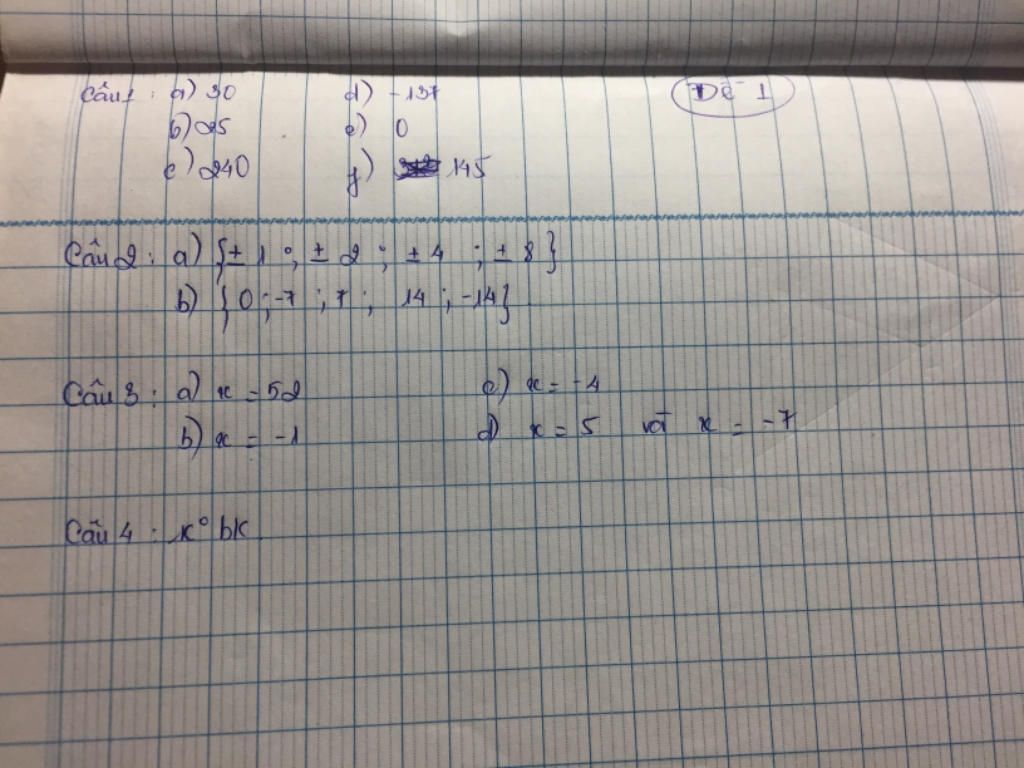 Câu 1 : a) 30 d) -137 Đề 1
b) 25 e) 0
c) 240 g) 145
Câu 2 : a) {± 1 ; ± 2 ; ± 4 ; ± 8}
b) {0 ; -7 ; 7 ; 14 ; -14}
Câu 3 : a) x = 52 c) x = -4
b) x = -1 d) x = 5 và x = -7
Câu 4 : k° bk